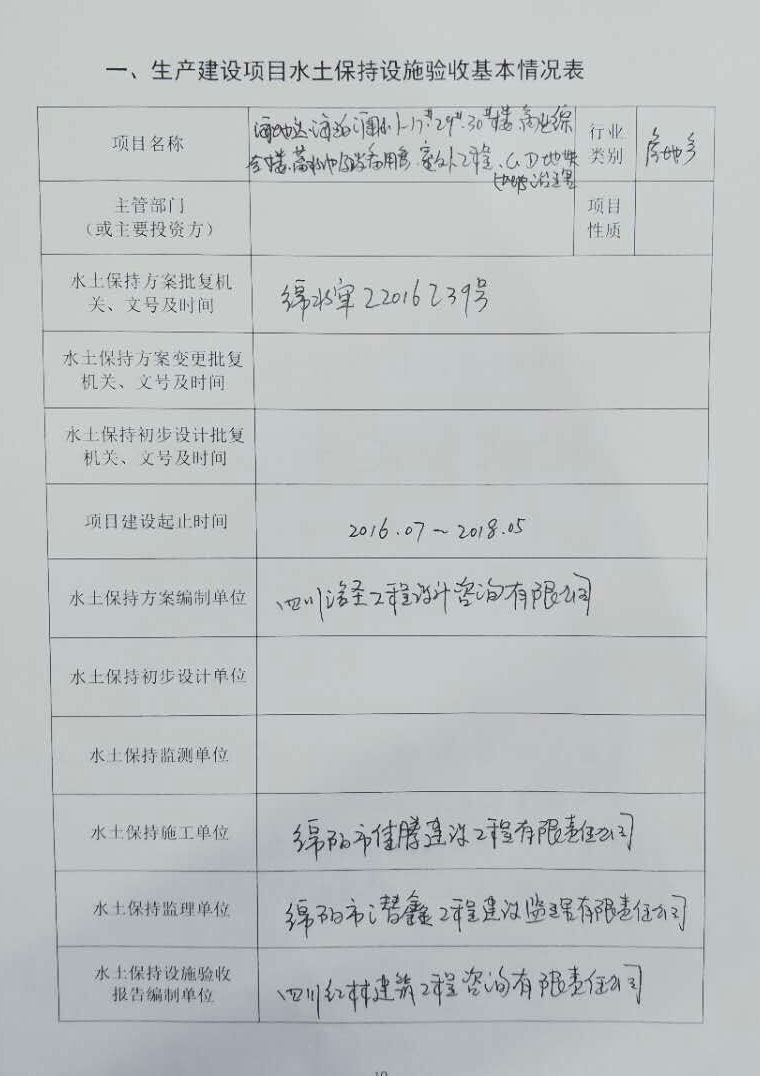 一、生产建设项目水土保持设施验收基本情况表
项目名称
1-17#.29#.30#楼.商业综
合楼、室外工程、C、D地块
行业
类别
房地产
主管部门
（或主要投资方）
项目
性质
水土保持方案批复机
关、文号及时间
绵水审[2016]39号
水土保持方案变更批复
机关、文号及时间
水土保持初步设计批复
机关、文号及时间
项目建设起止时间
2016.07～2018.05
水土保持方案编制单位
四川涪圣工程设计咨询有限公司
水土保持初步设计单位
水土保持监测单位
水土保持施工单位
绵阳市佳腾建设工程有限责任公司
水土保持监理单位
绵阳市潜鑫工程建设监理有限责任公司
水土保持设施验收
报告编制单位
四川红林建筑工程咨询有限责任公司
10